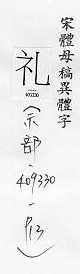 宋體母稿異體字
礼
409330
(示部-409330-P13)